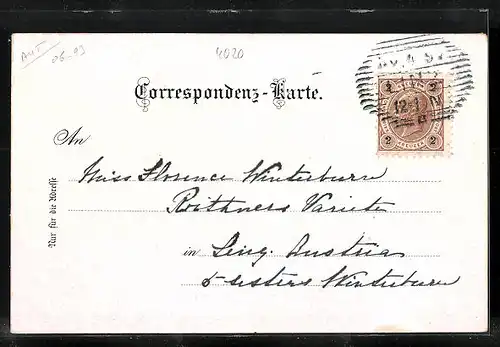 AnT
06-03
4020
Correspondenz-Karte.
2 2
12-1 N
2 KREUZER 2
An
Miss Florence Winterburn
Roithners Varieté
in Linz. Austria
5 sisters Winterburn
Nur für die Adresse